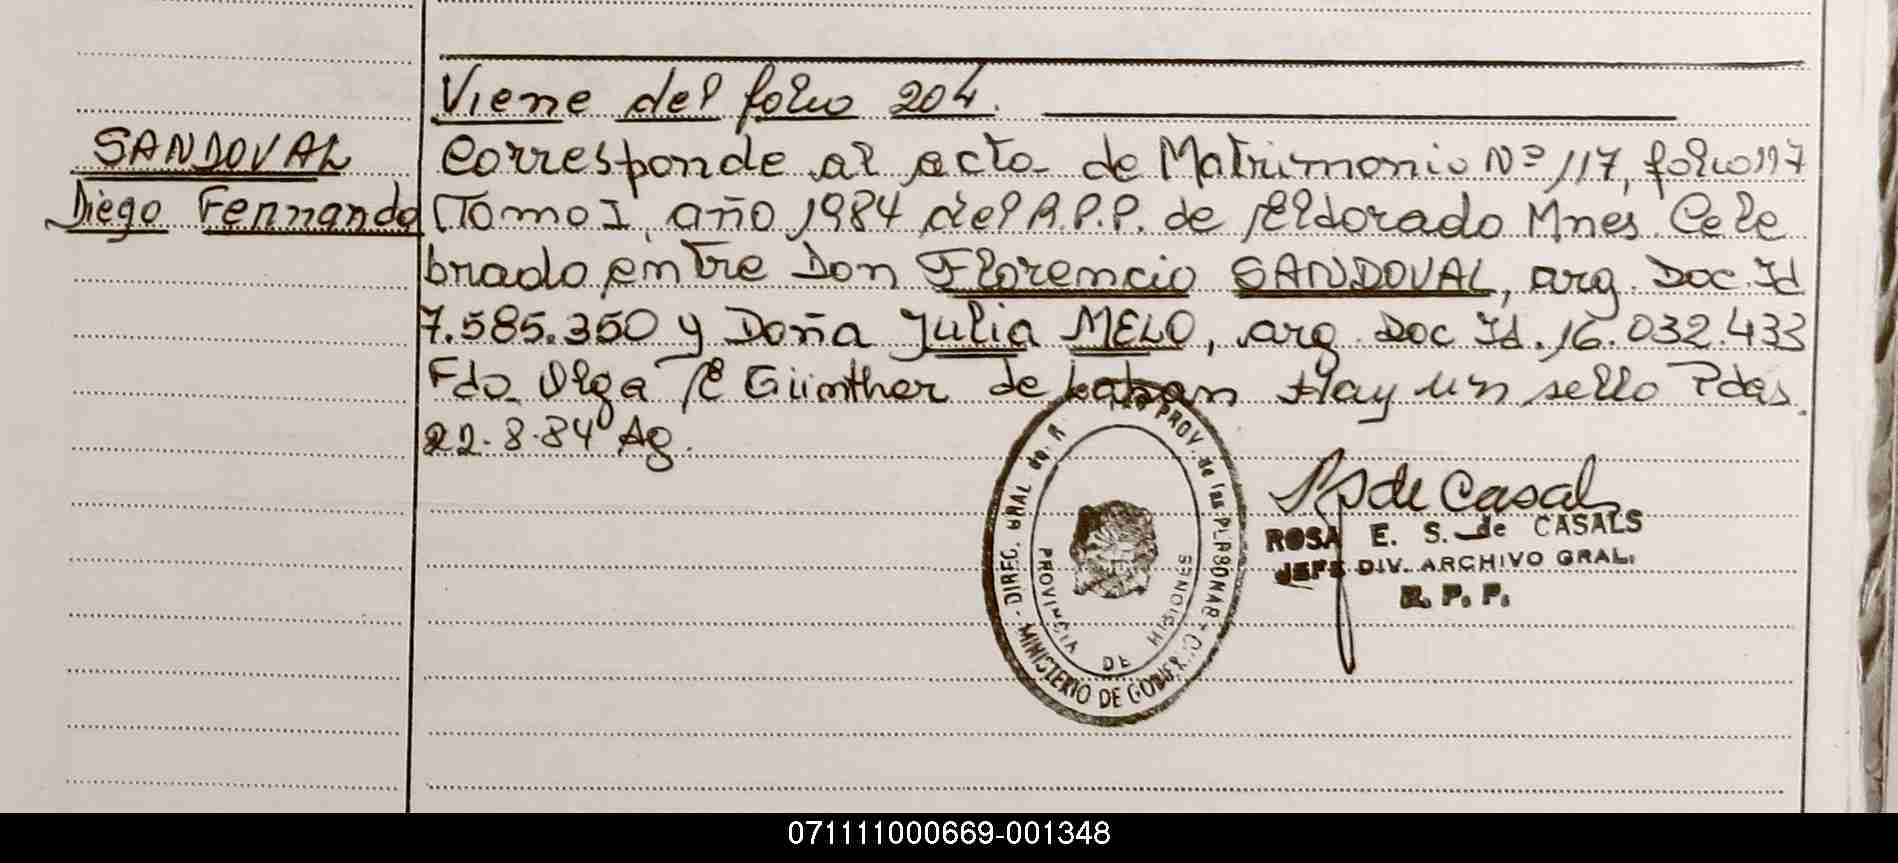 Viene del folio 204.
SANDOVAL
Diego Fernando
Corresponde al acta de Matrimonio Nº 117, folio 117
Tomo I, año 1984 del R.P.P. de Eldorado Mnes. Cele
brado entre Don Florencio SANDOVAL, arg. Doc. Id
7.585.350 y Doña Julia MELO, arg. Doc Id. 16.032.433
Fdo Olga E Günther de Hay un sello Pdas.
22.8.84 Ag.
de Casals
ROSA E. S. de CASALS
JEFE DIV. ARCHIVO GRAL.
R. P. P.
DIREC. GRAL de R PROV. de las PERSONAS
MINISTERIO DE GOBIERNO
PROVINCIA DE MISIONES
071111000669-001348